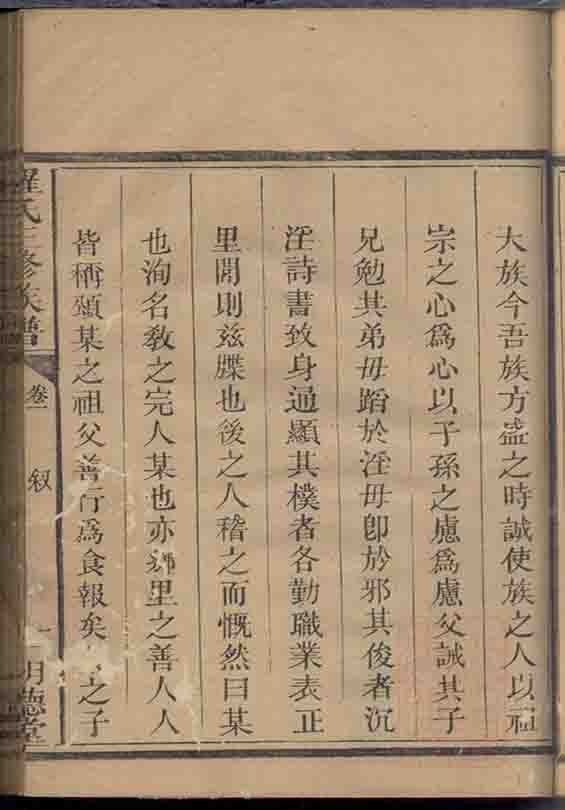 大族今吾族方盛之時誠使族之人以祖
宗之心為心以子孫之慮為慮父誡其子
兄勉其弟毋蹈於淫毋卽於邪其俊者沉
淫詩書致身通顯其樸者各勤職業表正
里閈則玆牒也後之人稽之而慨然曰某
也洵名敎之完人某也亦鄉里之善人人
皆稱頌某之祖父善行為食報矣之子
羅氏三修族譜
卷一
叙
一
明德堂